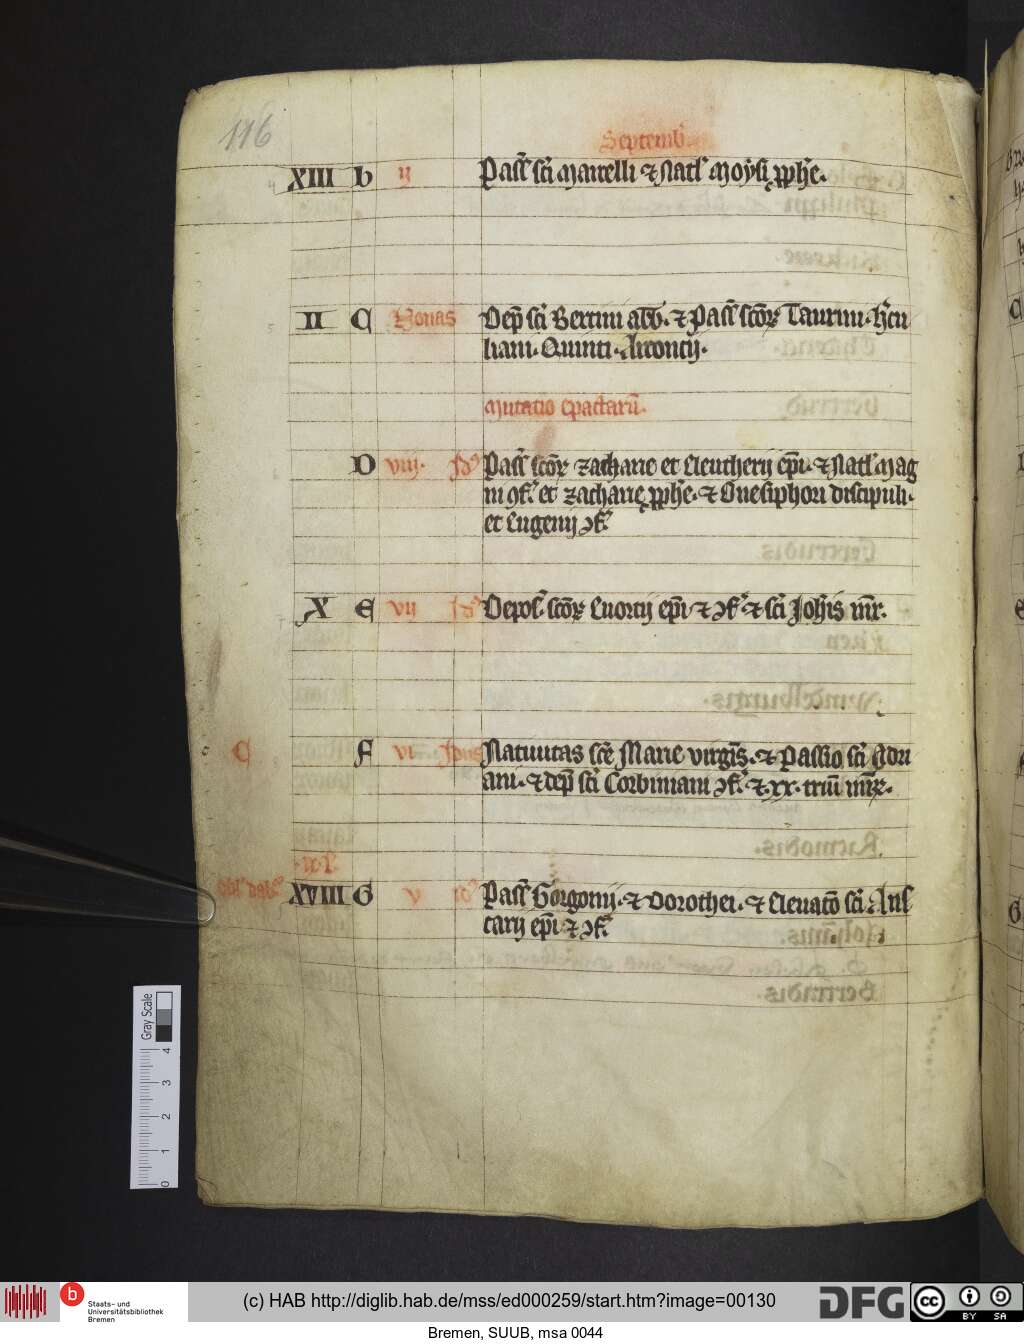 116
Septemb̄
XIII b ij Pass̄ sc̄i Marcelli ⁊ Natl̄ Moysi ꝓph̄e.
II C Nonas Dep̄ sc̄i Bertini abb̄. ⁊ Pass̄ sc̄oꝝ Taurini. h̄cu
liani. Quinti. Arontij.
Mutatio epactarū.
D viij. Id' Pass̄ sc̄oꝝ zacharie et Eleutherij ep̄i. ⁊ Natl̄ Mag
ni ꝯf̄. et zacharię ꝓph̄e. ⁊ Onesiphori discipuli.
et Eugenij ꝯf̄.
X E vij Id' Depos̄ sc̄oꝝ Euortij ep̄i ⁊ ꝯf̄ ⁊ sc̄i Joh̄is m̄r.
C F vi Idus Natiuitas sc̄e Marie virgīs. ⁊ Passio sc̄i Adri
ani. ⁊ dep̄ sc̄i Corbiniani ꝯf̄. ⁊ .xx. triū m̄rꝝ.
XVIII G v Id' Pass̄ Gorgonij. ⁊ Dorothei. ⁊ Eleuatō sc̄i Ans
carij ep̄i ⁊ ꝯf̄
Gray Scale
4
3
2
1
0
b
Staats- und
Universitätsbibliothek
Bremen
(c) HAB http://diglib.hab.de/mss/ed000259/start.htm?image=00130
DFG
cc
BY SA
Bremen, SUUB, msa 0044